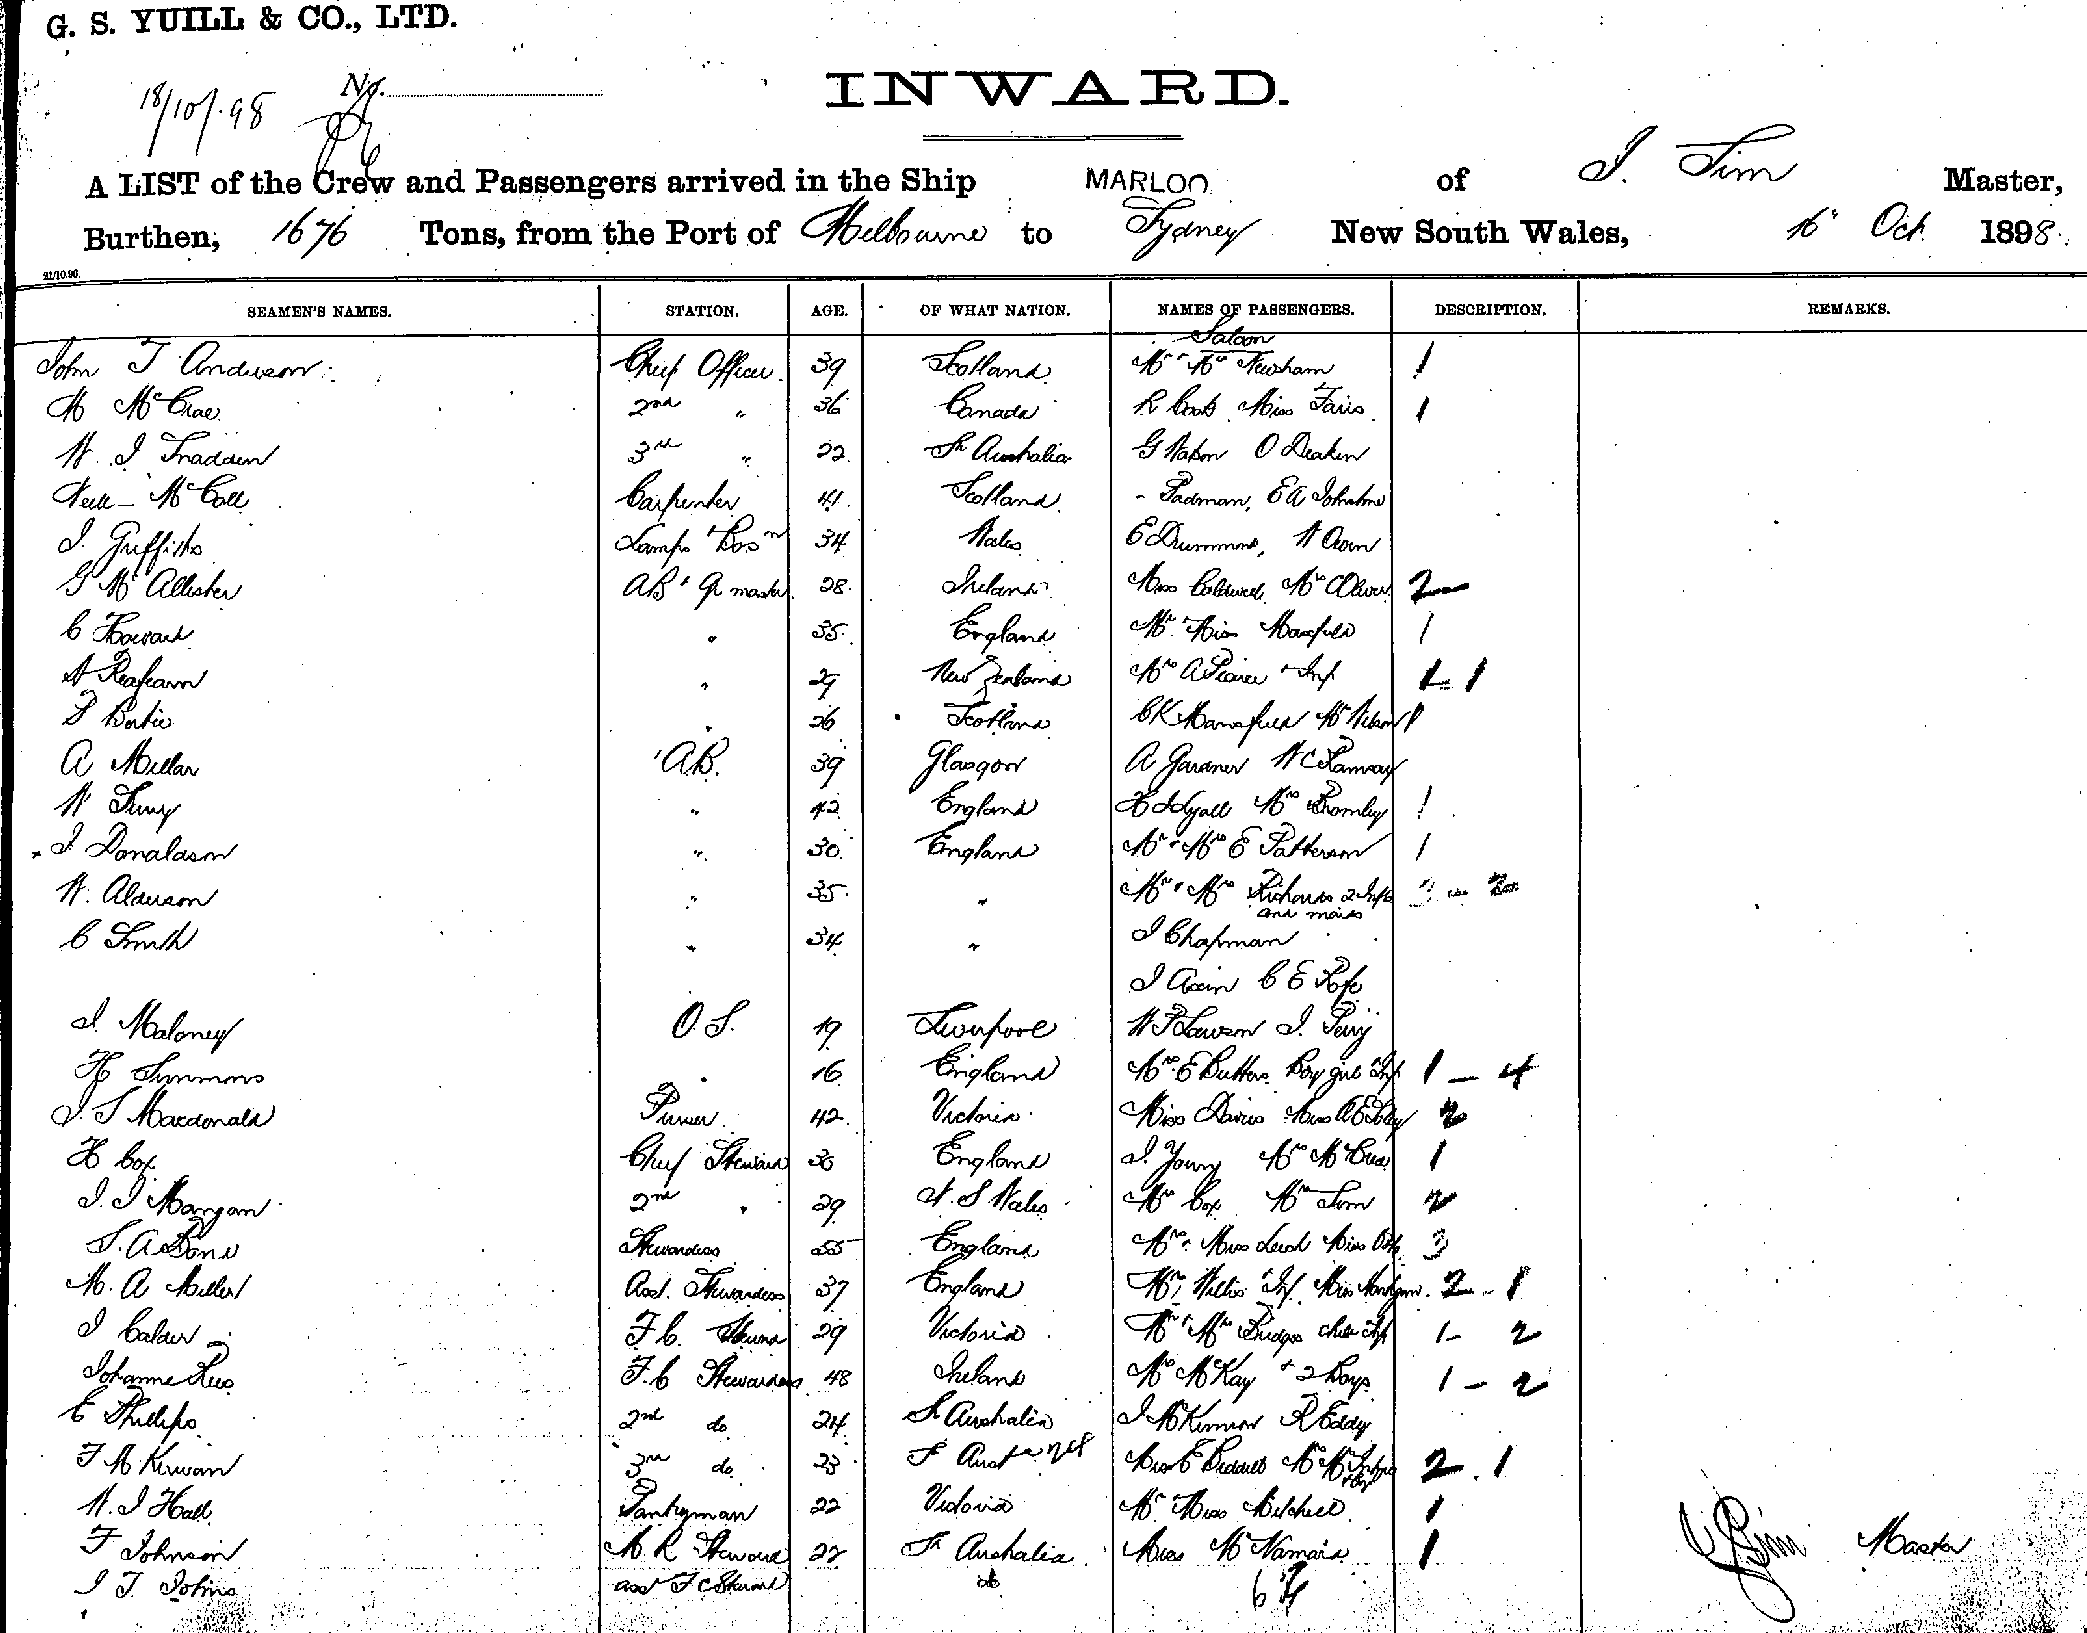 G. S. YUILL & CO., LTD.
18/10/.98 No.
INWARD.
A LIST of the Crew and Passengers arrived in the Ship MARLOO of J. Sim Master,
Burthen, 1676 Tons, from the Port of Melbourne to Sydney New South Wales, 16" Oct 1898.
21/10.96.
SEAMEN'S NAMES. STATION. AGE. OF WHAT NATION. NAMES OF PASSENGERS. DESCRIPTION. REMARKS.
Saloon
John T Anderson Chief Officer 39 Scotland Mr " Mrs Newsham 1
M McCrae 2nd " 36 Canada R Cook Miss Faris 1
W. J 3rd " 22 Sh Australia G Watson O Deakin
Neill McCall Carpenter 41 Scotland - Padman, E A Johnstone
J. Griffiths Lamps " Bosn 34 Wales E Drummond, W
G McAllister AB " Qr master 28 Ireland Miss Caldwell Mrs Oliver 2
C Howard " 35 England Mr Miss Maxfield 1
" 29 New Zealand Mrs A Pearce " Inf 1 - 1
P Bertie " 26 Scotland C K Mansfield Mrs 1
A Millar A.B. 39 Glasgow A Gardner W C Ramsay
W " 42 England H Lyall Mrs Bromley 1
J Donaldson " 30 England Mr " Mrs E Patterson 1
W. Alderson " 35 " Mr " Mrs Richards 2 Infts 3
and maid
C Smith " 34 " J Chapman
J C E Pope
J. Maloney O S. 19 Liverpool W P Lawson J. Perry
H Simmons " 16 England Mrs E Butters Boy girl Inf 1 - 4
J. S Macdonald Purser 42 Victoria Miss Davies Miss 2
H Cox Chief Steward 30 England J. Young Mrs McCrae 1
J. J Mangan 2nd " 29 N. S Wales Mrs Cox Mrs Sim 2
S. A Bond Stewardess 55 England Mrs " Miss Miss 3
M. A Millet Asst. Stewardess 37 England Mrs Willis Inf. Miss 2 - 1
J Calder F. C. Steward 29 Victoria Mr " Mrs Bridges child Inf 1 - 2
Johanne F. C Stewardess 48 Ireland Mrs McKay + 2 Boys 1 - 2
E Phillips 2nd do 24 Sh Australia J McKinnon R Eddy
F M Kirwan 3rd do 23 S Aust Miss E Mrs 2 . 1
W. J Hall Pantryman 22 Victoria Mr. Miss Mitchell 1
F Johnson M. R Steward 22 Sh Australia Miss McNamara 1
J T. Johns asst F C Steward do 64
J Sim Master